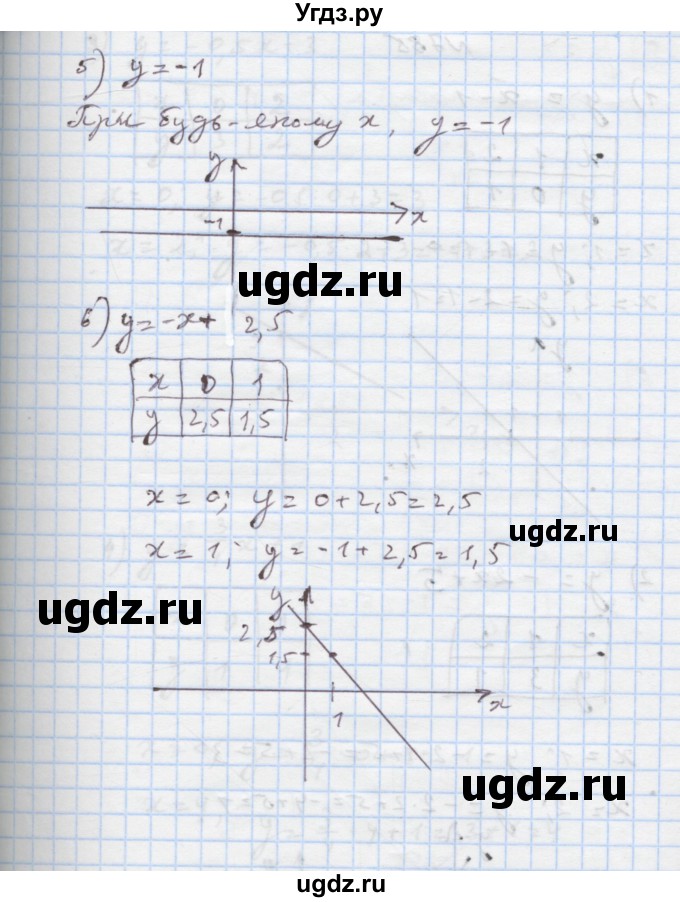 Угдз.ру
5) y = -1
При будь-якому x, y = -1
y
-1
x
ugdz.ru
6) y = -x + 2,5
x 0 1
y 2,5 1,5
x = 0; y = 0 + 2,5 = 2,5
ugdz.ru
x = 1; y = -1 + 2,5 = 1,5
ugdz.ru
y
2,5
1,5
x
1
ugdz.ru
ugdz.ru